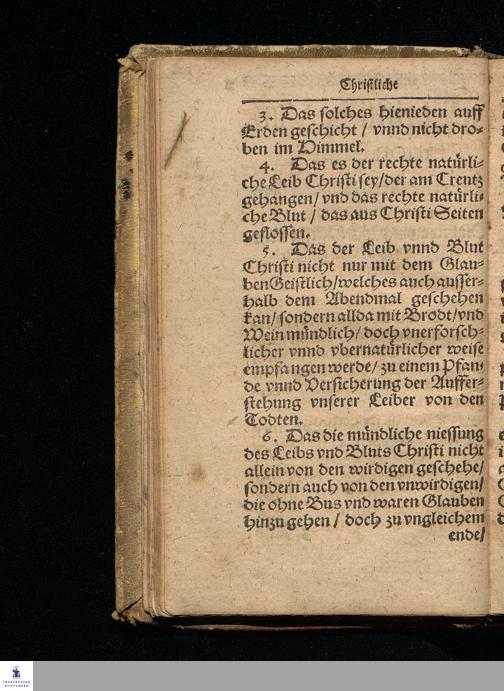 Christliche
3. Das solches hienieden auff
Erden geschicht / vnnd nicht dro-
ben im Himmel.
4. Das es der rechte natürli-
che Leib Christi sey / der am Creutz
gehangen / vnd das rechte natürli-
che Blut / das aus Christi Seiten
geflossen.
5. Das der Leib vnnd Blut
Christi nicht nur mit dem Glau-
ben Geistlich / welches auch ausser-
halb dem Abendmal geschehen
kan / sondern allda mit Brodt / vnd
Wein mündlich / doch vnerforsch-
licher vnnd vbernatürlicher weise
empfangen werde / zu einem Pfan-
de vnnd Versicherung der Auffer-
stehung vnserer Leiber von den
Todten.
6. Das die mündliche niessung
des Leibs vnd Bluts Christi nicht
allein von den wirdigen geschehe /
sondern auch von den vnwirdigen /
die ohne Bus vnd waren Glauben
hinzu gehen / doch zu vngleichem
ende /
FRANCKESCHE
STIFTUNGEN